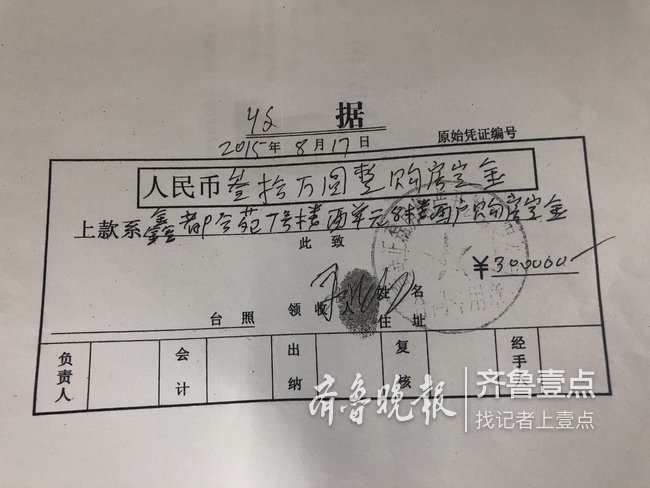 收 据
2015年8月17日 原始凭证编号
人民币叁拾万圆整购房定金
上款系鑫都 苑7号楼两单元8楼两户购房定金
此致
¥300000
台照 领收人 姓名 住址
负责人 会计 出纳 复核 经手
齐鲁晚报 齐鲁壹点
找记者上壹点